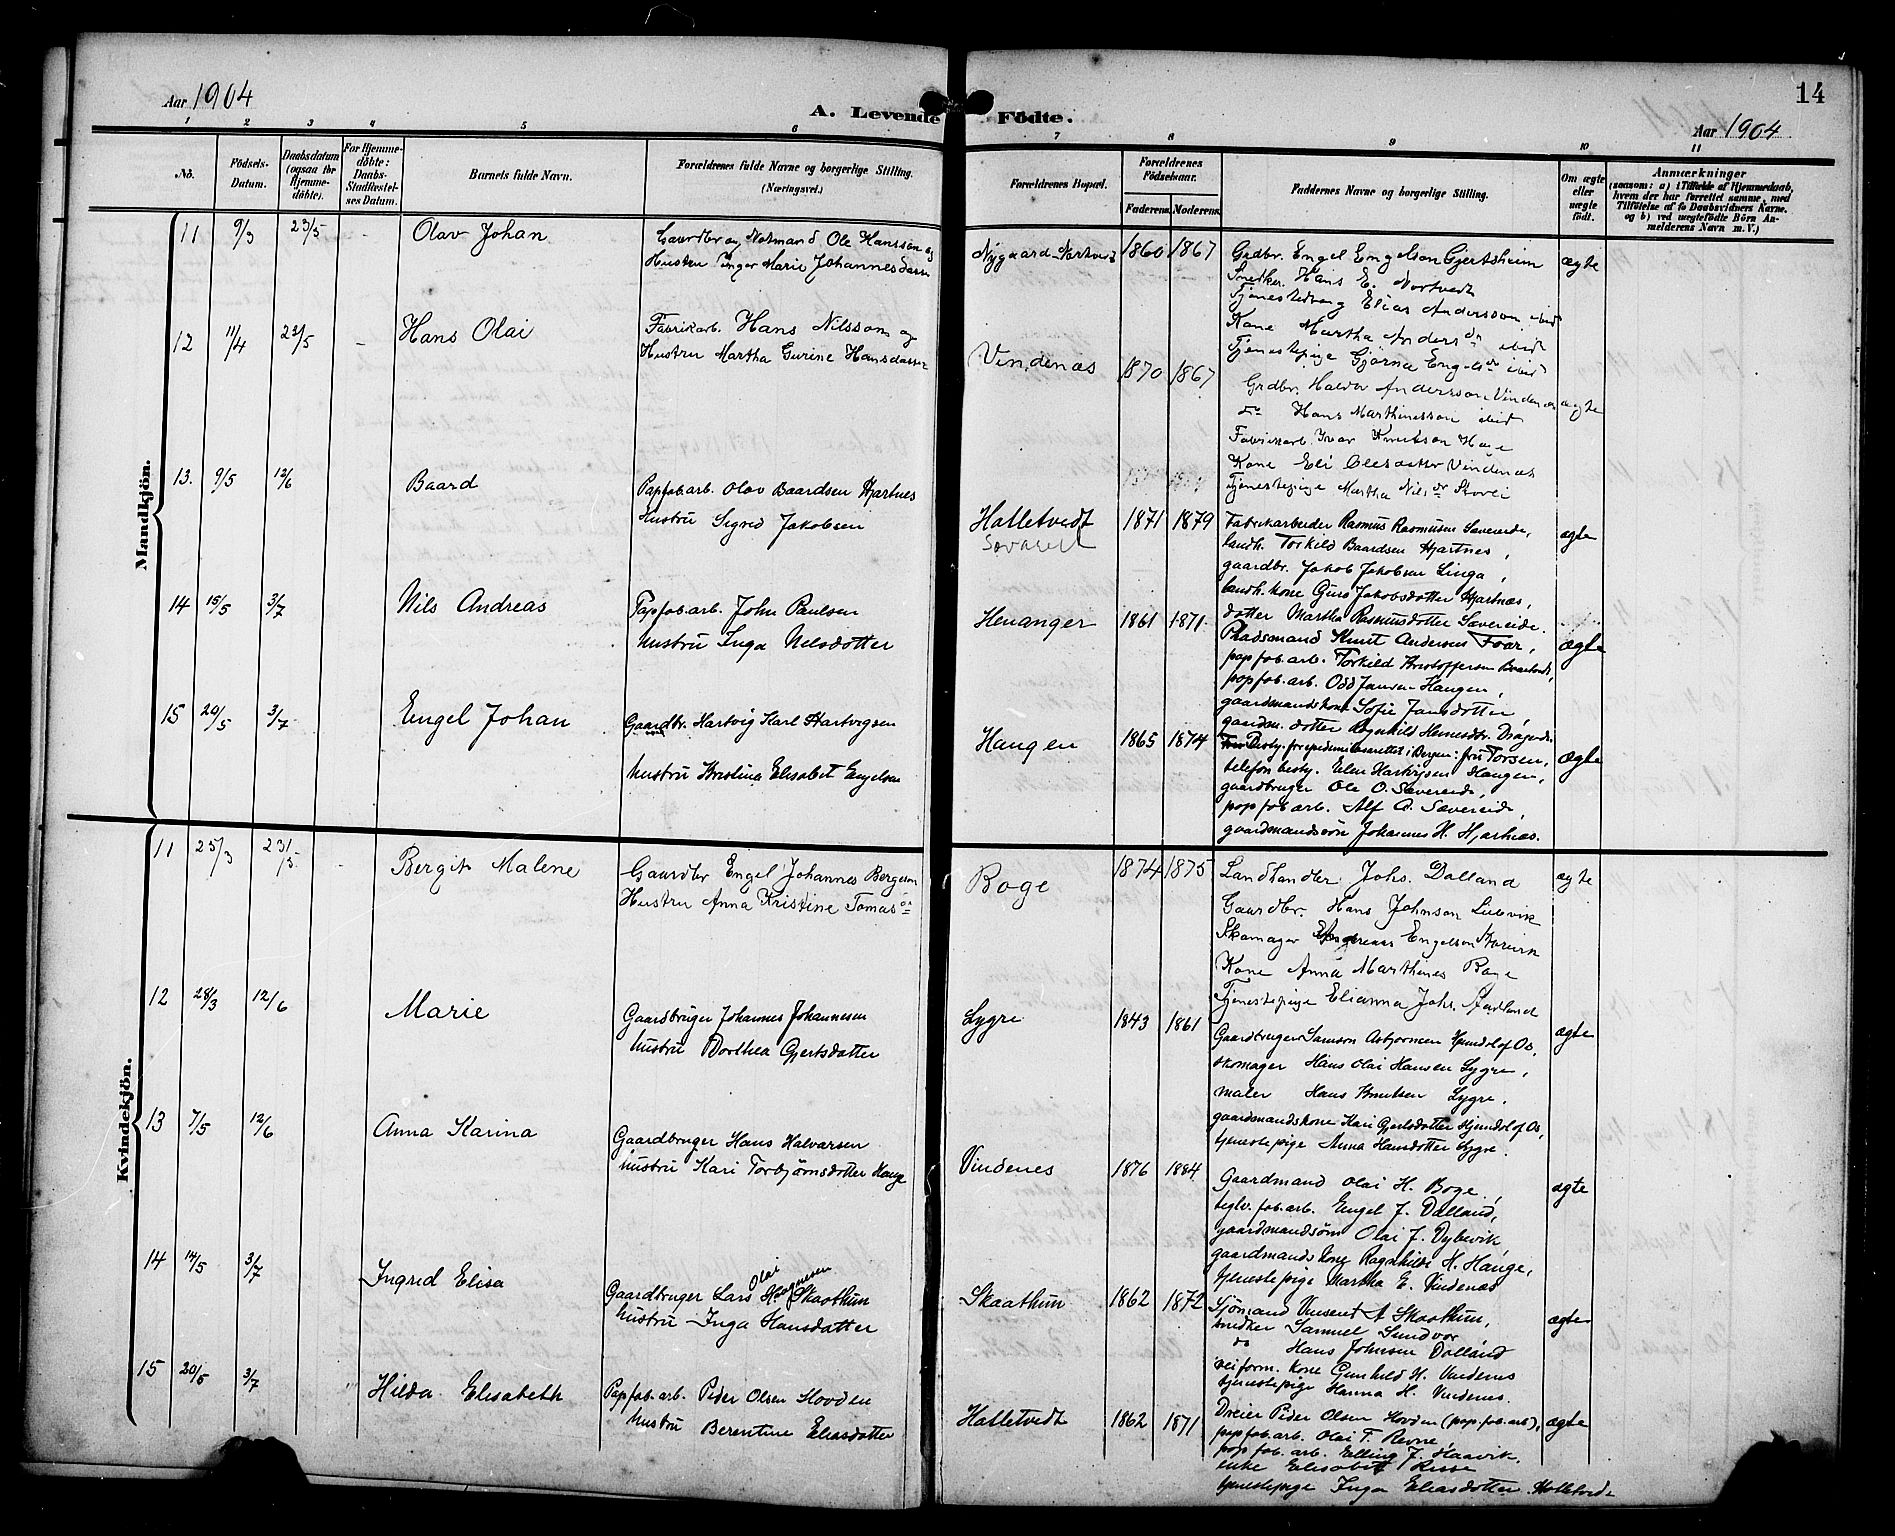 Aar 1904
A. Levende Födte.
14
Aar 1904
1 2 3 4 5 6 7 8 9 10 11
No.
Födsels-Datum.
Daabsdatum (ogsaa for Hjemme-döbte).
For Hjemme-döbte: Daabs-Stadfæstel-ses Datum.
Barnets fulde Navn.
Forældrenes fulde Navne og borgerlige Stilling. (Næringsvei.)
Forældrenes Bopæl.
Forældrenes Födselsaar.
Faderens. Moderens.
Faddernes Navne og borgerlige Stilling.
Om ægte eller uægte födt.
Anmærkninger
(saasom: a) i Tilfælde af Hjemmedaab, hvem der har forrettet samme, med Tilföielse af to Daabsvidners Navne, og b) ved uægtefödte Börn An-melderens Navn m. V.)
Mandkjön.
11 9/3 23/5 Olav Johan
Gaardbr og Notmand Ole Hansson og
Hustru Inger Marie Johannesdatter
Nygaard-Nortvedt 1860 1867
Grdbr. Engel Engelson Gjertsheim
Snedker Hans E. Nortvedt
Tjenestedreng Elias Andersson ibid
Kone Martha Andersdr ibid
Tjenestepige Gjørna Engelsdr ibid
ægte
12 11/4 23/5 - Hans Olai
Fabrikarb. Hans Nilsson og
Hustru Martha Gurine Hansdatter
Vindenæs 1870 1867
Grdbr. Haldor Andersson Vindenæs
do Hans Marthinesson ibid
Fabrikarb. Ivar Knutson Hage
Kone Eli Olesdatter Vindenæs
Tjenestepige Martha Nilsdr Skovei
ægte
13. 9/5 12/6 Baard
Papfab.arb. Olav Baardsen Hjartnes
Hustru Sigrid Jakobsen
Halletvedt 1871 1879
Fabrikarbeider Rasmus Rasmusen Sævereide,
landh. Torkild Baardsen Hjartnes,
gaardbr. Jakob Jakobsen Linga,
landh. kone Guro Jakobsdotter Hjartnæs,
dotter Martha Rasmusdotter Sævereide.
ægte
14 15/5 3/7 Nils Andreas
Papfab.arb. John Paulsen
hustru Inga Nilsdotter
Henanger 1861 1871
Pladsmand Knut Andersen Foar,
papfab.arb. Torkild Kristoffersen
papfab.arb. Odd Jansen Haugen,
gaardmandskone Sofie Jansdotter,
gaardm. dotter Ragnhild
ægte
15 29/5 3/7 Engel Johan
Gaardbr. Hartvig Karl Hartvigsen
hustru Kristina Elisabet Engelsen
Haugen 1865 1874
Besty. for epidemilasarettet i Bergen: fru Torsen,
telefonbesty. Elen Hartvigsen Haugen,
gaardbruger Ole O. Sævereide,
papfab.arb. Alf A. Sævereide,
gaardmandssøn Johannes H. Hjartnæs.
ægte
Kvindekjön.
11 25/3 23/5 - Bergit Malene
Gaardbr Engel Johannes Bergeson
Hustru Anna Kristine Tomasdr
Boge 1874 1875
Landhandler Johs. Dalland
Gaardbr. Hans Johnson Lubvik
Skomager Andreas Engelson
Kone Anna Marthines Boge
Tjenestepige Elianna Johs.
ægte
12 28/3 12/6 Marie
Gaardbruger Johannes Johannesen
hustru Dorthea Gjertsdatter
Lygre 1843 1861
Gaardbruger Samson Asbjørnsen Hjundolfos,
skomager Hans Olai Hansen Lygre,
maler Hans Knutsen Lygre.
gaardmandskone Kari Gjertsdotter Hjundolfos,
tjenestepige Anna Hansdotter Lygre.
ægte
13 7/5 12/6 Anna Karina
Gaardbruger Hans Halvarsen
hustru Kari Torbjørnsdotter Hauge
Vindenes 1876 1884
Gaardmand Olai H. Boge,
teglv.fab.arb. Engel J. Dalland,
gaardmandsøn Olai J. Dybevik
gaardmandskone Ragnhilde H. Hauge,
tjenestepige Martha E. Vindenæs
ægte
14 14/5 3/7 Ingrid Elisa
Gaardbruger Lars Olai Skaathun
hustru Inga Hansdatter
Skaathun 1862 1872
Sjømand Vinsent A Skaathun,
snedker Samuel Sundvor,
do Hans Johnsen Dalland
veiform. kone Gunhild H. Vindenes
tjenestepige Hanna H. Vindenes.
ægte
15 20/5 3/7 Hilda Elisabeth
Papfab.arb. Peder Olsen Hovden
hustru Berentine Eliasdotter
Halletvedt 1862 1871
Dreier Peder Olsen Hovden (pap.fab.arb),
papfab.arb. Olai T. Revne,
papfab.arb. Elling J. Haavik,
enke Elisabet Risse
tjenestepige Inga Eliasdotter Halletvedt
ægte